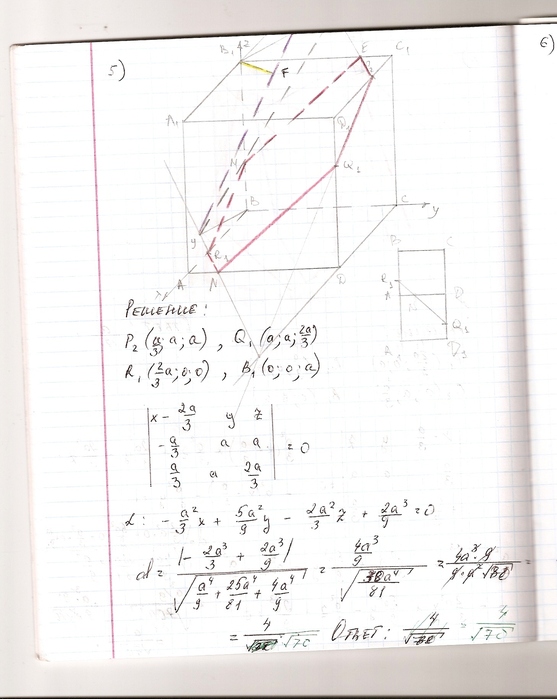 5)
6)
B₁ z E C₁
F
A₁ D₁
M Q₁
B C y
y
R₁
A N D
x
B C
R₁
A D
N
Q₁
D₁
Решение:
P₂ (a/3; a; a) , Q₁ (a; a; 2a/3)
R₁ (2/3 a; 0; 0) , B₁ (0; 0; a)
| x - 2a/3 y z |
| -a/3 a a | = 0
| a/3 a 2a/3 |
α: - a²/3 x + 5a²/9 y - 2a²/3 z + 2a³/9 = 0
d = |- 2a³/3 + 2a³/9| / √(a⁴/9 + 25a⁴/81 + 4a⁴/9) = (4a³/9) / √(70a⁴/81) = 4a³·9 / 9·a²√70 =
= 4/√70 Ответ: 4/√70 = 4/√70